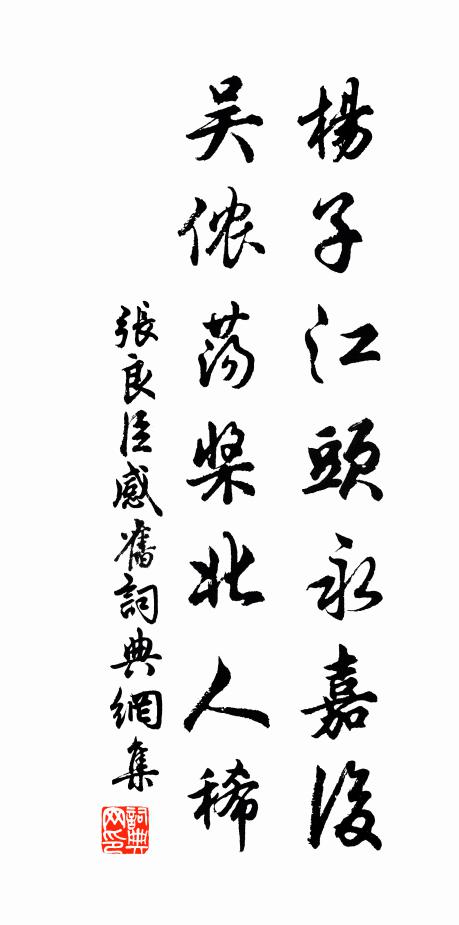 楊子江頭永嘉後
吴侬蕩槳北人稀
張良臣感舊詞典網集
詞典网印